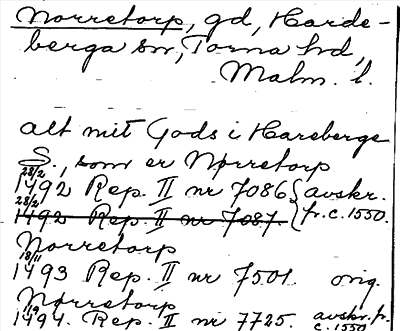 Norretorp, gd, Harde-
berga sn, Torna hd,
Malm. l.
alt mit Gods i Hareberge
S., som er Nørretorp
28/2 1492 Rep. II nr 7086 } avskr.
28/2 1492 Rep. II nr 7087 } fr. c. 1550.
Norretorp
18/11 1493 Rep. II nr 7501 orig.
Nørretorp
1494. Rep. II nr 7725 avskr. fr. c. 1550